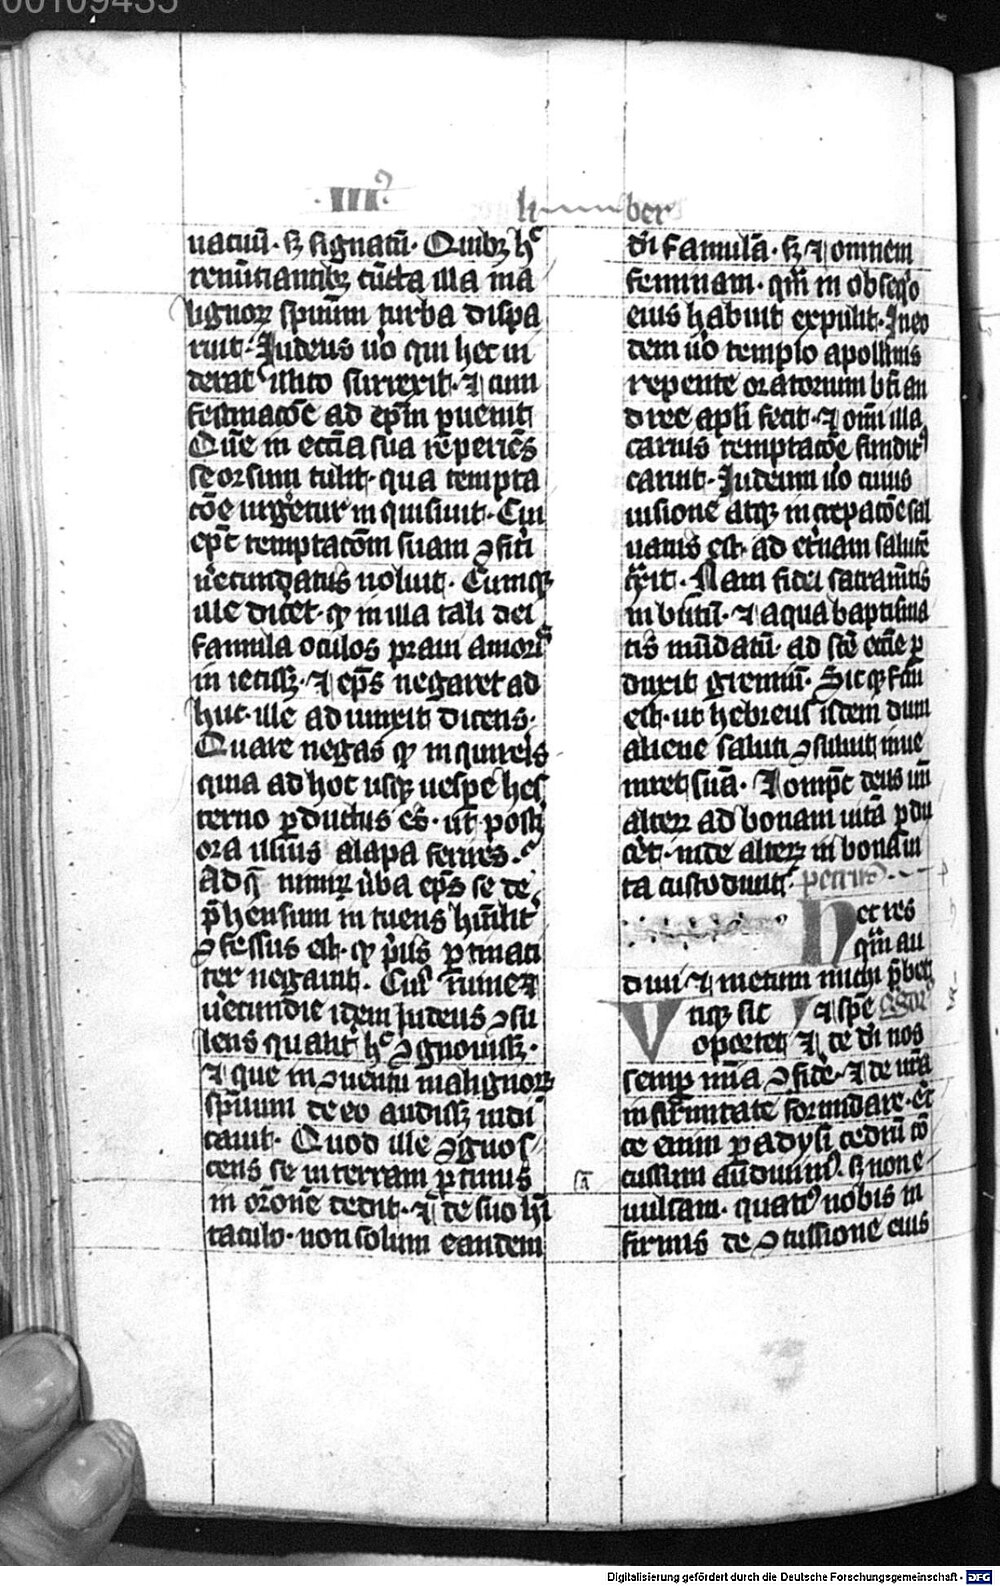 00109435
·III·
li ber
uacuū· sꝫ signatū· Quibꝫ hͨ
renūtiantibꝫ cūcta illa ma
lignoꝝ spūum turba dispa
ruit· Iudeus u̇o qui hec ui
derat illico surrexit· ⁊ cum
festinacōe ad ep̄m puenit
Quē in ecc̄ia sua reperiēs
seorsum tulit· qua tempta
cōe urgetur inquisiuit· Cui
ep̄c temptacōm suam ꝯfiti
u̇ecundatus noluit· Cumqꝫ
ille dicet· qꝫ in illa tali dei
famula oculos prauı amorꝭ
iniecissꝫ· ⁊ ep̄s negaret ad
huc· ille adiunxit dicens·
Quare negas qꝫ inquireris
quia ad hoc usqꝫ uespe hes
terno ꝑductus es· ut post
ora illius alapa feries·
Ad q̄ nimiꝝ u̇ba ep̄s se de
p̄hensum intuens hūilit
ꝯfessus est· qꝫ p̄us ꝑtinaci
ter negauit· Cuiꝰ ruine ⁊
u̇ecundie idem Iudeus ꝯsu
lens qualit hͨ ꝯgnouissꝫ·
⁊ que in ꝯuentu malignoꝝ
spūum de eo audissꝫ indi
cauit· Quod ille ꝯgnos
cens se in terram ꝓtinus
in ōrone dedit· ⁊ de suo hı̄
taculo· non solum eandem
dī famulā· sꝫ ⁊ omnem
feminam· que in obseqͦo
eius habuit expulit· In eo
dem u̇o templo apollinis
repente oratorium bī an
dree apl̄i fecit· ⁊ om̄i illa
carnis temptacōe funditꝰ
caruit· Iudeum u̇o cuius
uisione atqꝫ increpacōe sal
uatus est· ad et̄nam salutē
t̄xit· Nam fidei sacram̄tis
inbutū· ⁊ aqua baptisma
tis mūdatū· ad scē ecc̄ie ꝑ
duxit gremiū· Sicqꝫ fcm̄
est· ut hebreus istem dum
aliene saluti ꝯsuluit inue
niret suā· ⁊ omp̄c deus in
alteꝝ ad bonam uitā ꝑdu
cēt· inde alteꝝ in bona ui
ta custodiuit· petrus
Hec res
quā au
diui ⁊ metum michi p̄bet
Vnqꝫ sic ⁊ spē ggoriꝰ
oportet ⁊ de dī nos
semꝑ mīa ꝯfidē· ⁊ de nr̄a
infirmitate formidare· Ec
ce enim paradysi cedrū cō
cussum audiuimꝰ· sꝫ non e
uulsam· quatꝰ nobis in
firmis de ꝯcussione eius
Digitalisierung gefördert durch die Deutsche Forschungsgemeinschaft - DFG